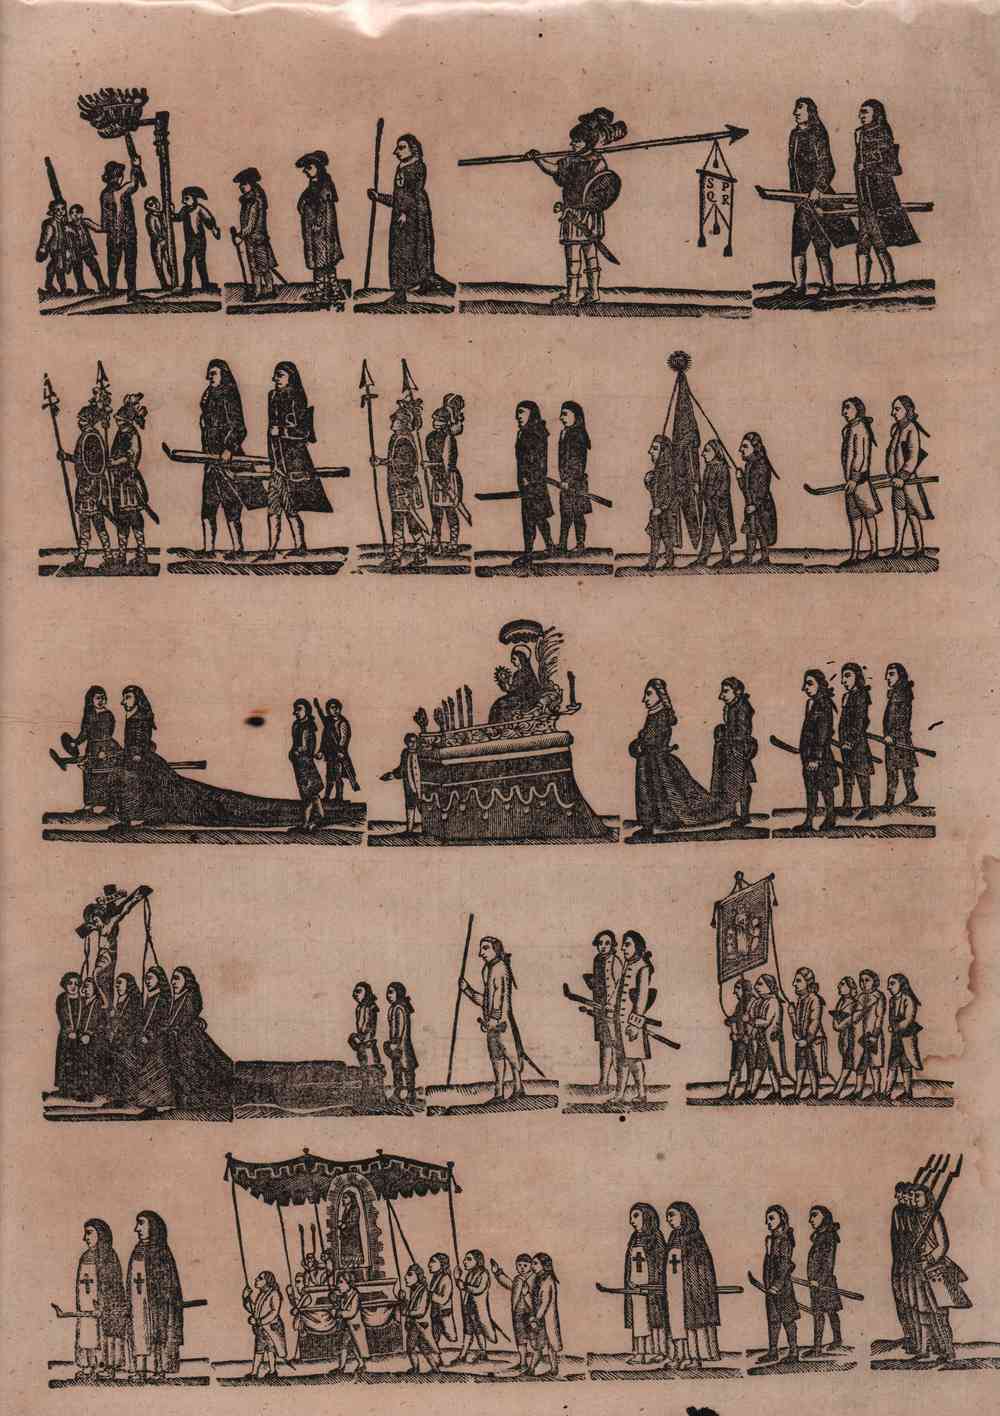 S P
Q R